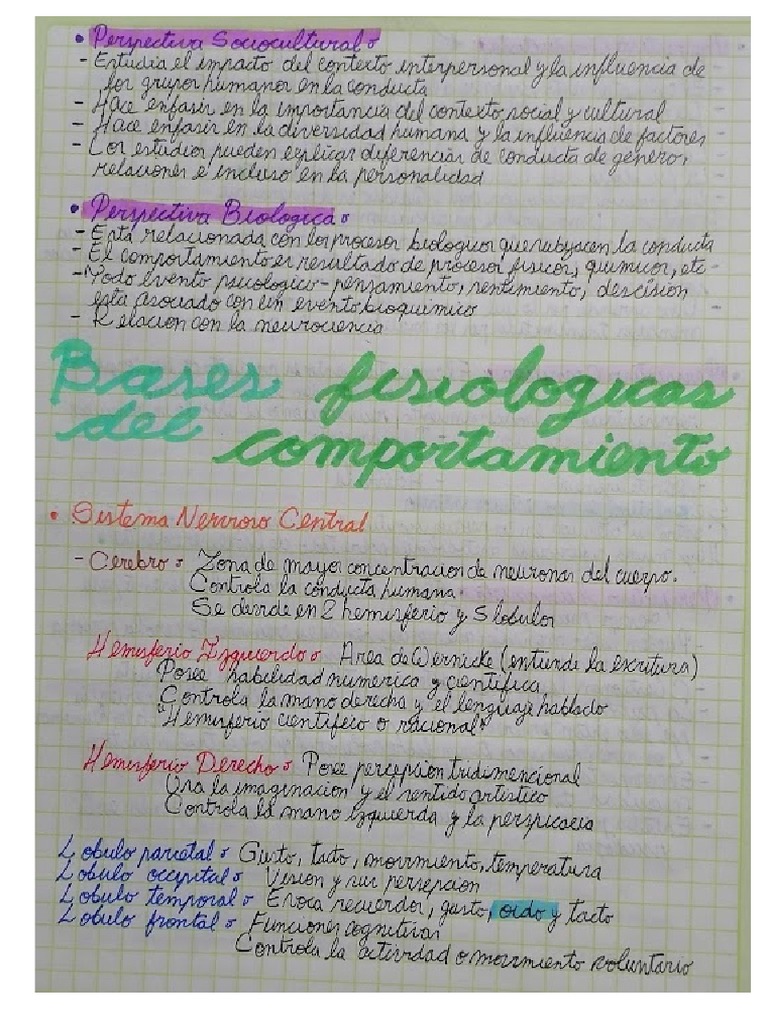 • Perspectiva Sociocultural:
- Estudia el impacto del contexto interpersonal y la influencia de
los grupos humanos en la conducta
- Hace enfasis en la importancia del contexto social y cultural
- Hace enfasis en la diversidad humana y la influencia de factores
- Los estudios pueden explicar diferencias de conducta de género,
relaciones e incluso en la personalidad
• Perspectiva Biologica:
- Está relacionada con los procesos biologicos que subyacen la conducta
- El comportamiento es resultado de procesos fisicos, quimicos, etc
- Todo evento psicologico - pensamiento, sentimiento, descision
esta asociado con un evento bioquimico
- Relacion con la neurociencia
Bases fisiologicas
del comportamiento
• Sistema Nervioso Central
- Cerebro: Zona de mayor concentracion de neuronas del cuerpo.
Controla la conducta humana
Se divide en 2 hemisferio y 5 lobulos
Hemisferio Izquierdo: Area de Wernicke (entiende la escritura)
Posee habilidad numerica y cientifica
Controla la mano derecha y el lenguaje hablado
"Hemisferio cientifico o racional"
Hemisferio Derecho: Posee percepcion tridimencional
Usa la imaginacion y el sentido artistico
Controla la mano izquierda y la perspicacia
Lobulo parietal: Gusto, tacto, movimiento, temperatura
Lobulo occipital: Vision y sus persepcion
Lobulo temporal: Evoca recuerdos, gusto, oido y tacto
Lobulo frontal: Funciones cognitivas
Controla la actividad o movimiento voluntario